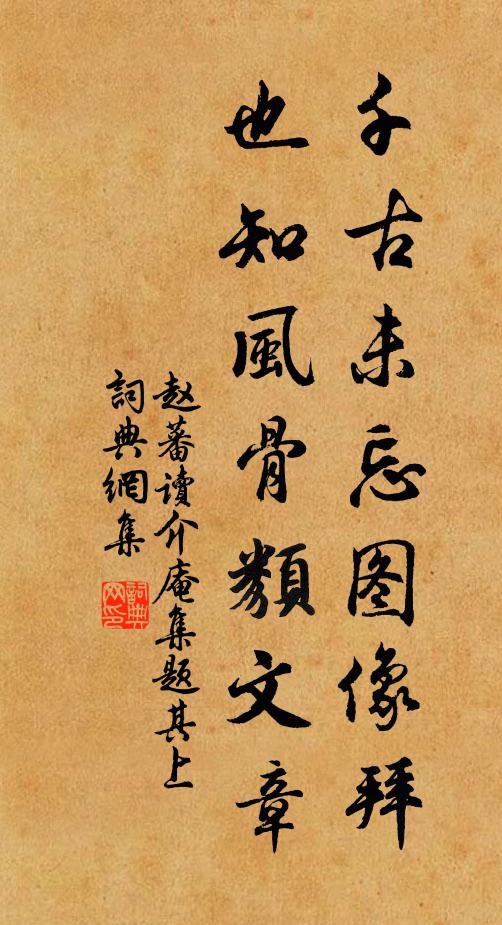 千古未忘图像拜
也知風骨類文章
赵蕃讀介庵集题其上
詞典網集
詞典网印